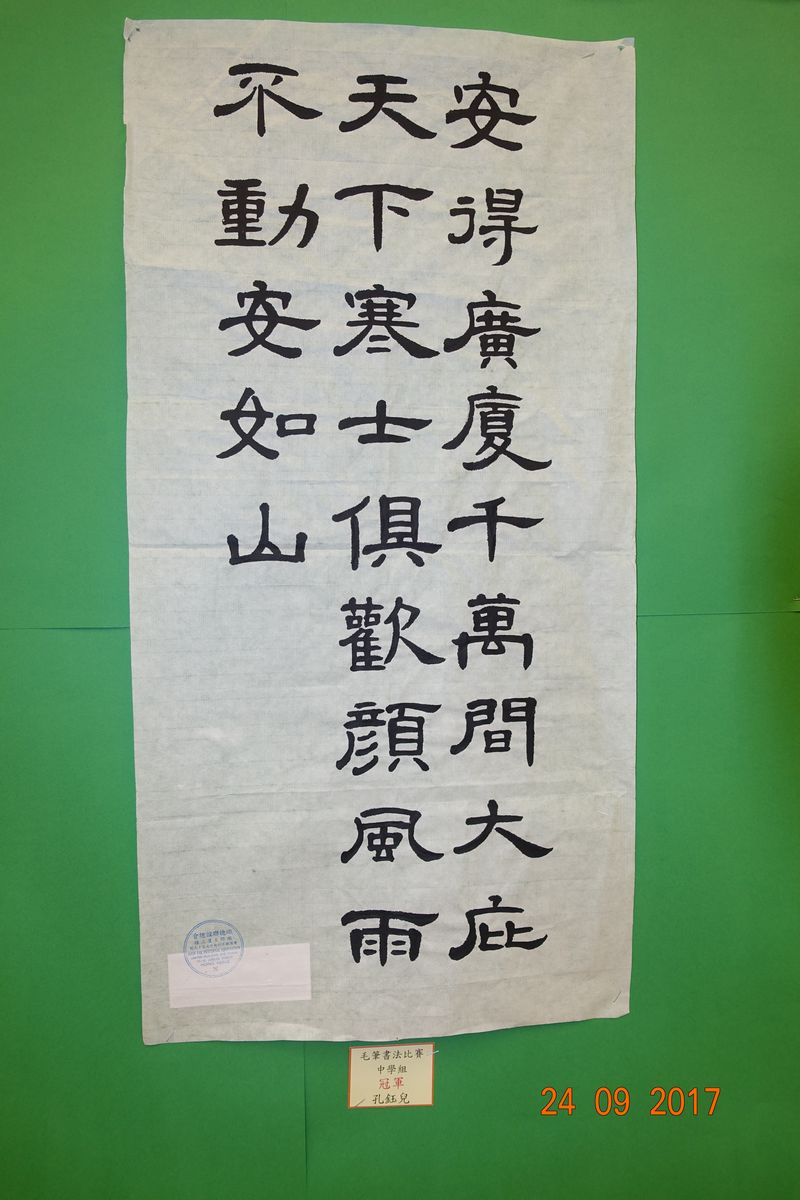 安得廣廈千萬間大庇
天下寒士俱歡顔風雨
不動安如山
毛筆書法比賽
中學組
冠軍
孔鈺兒
24 09 2017